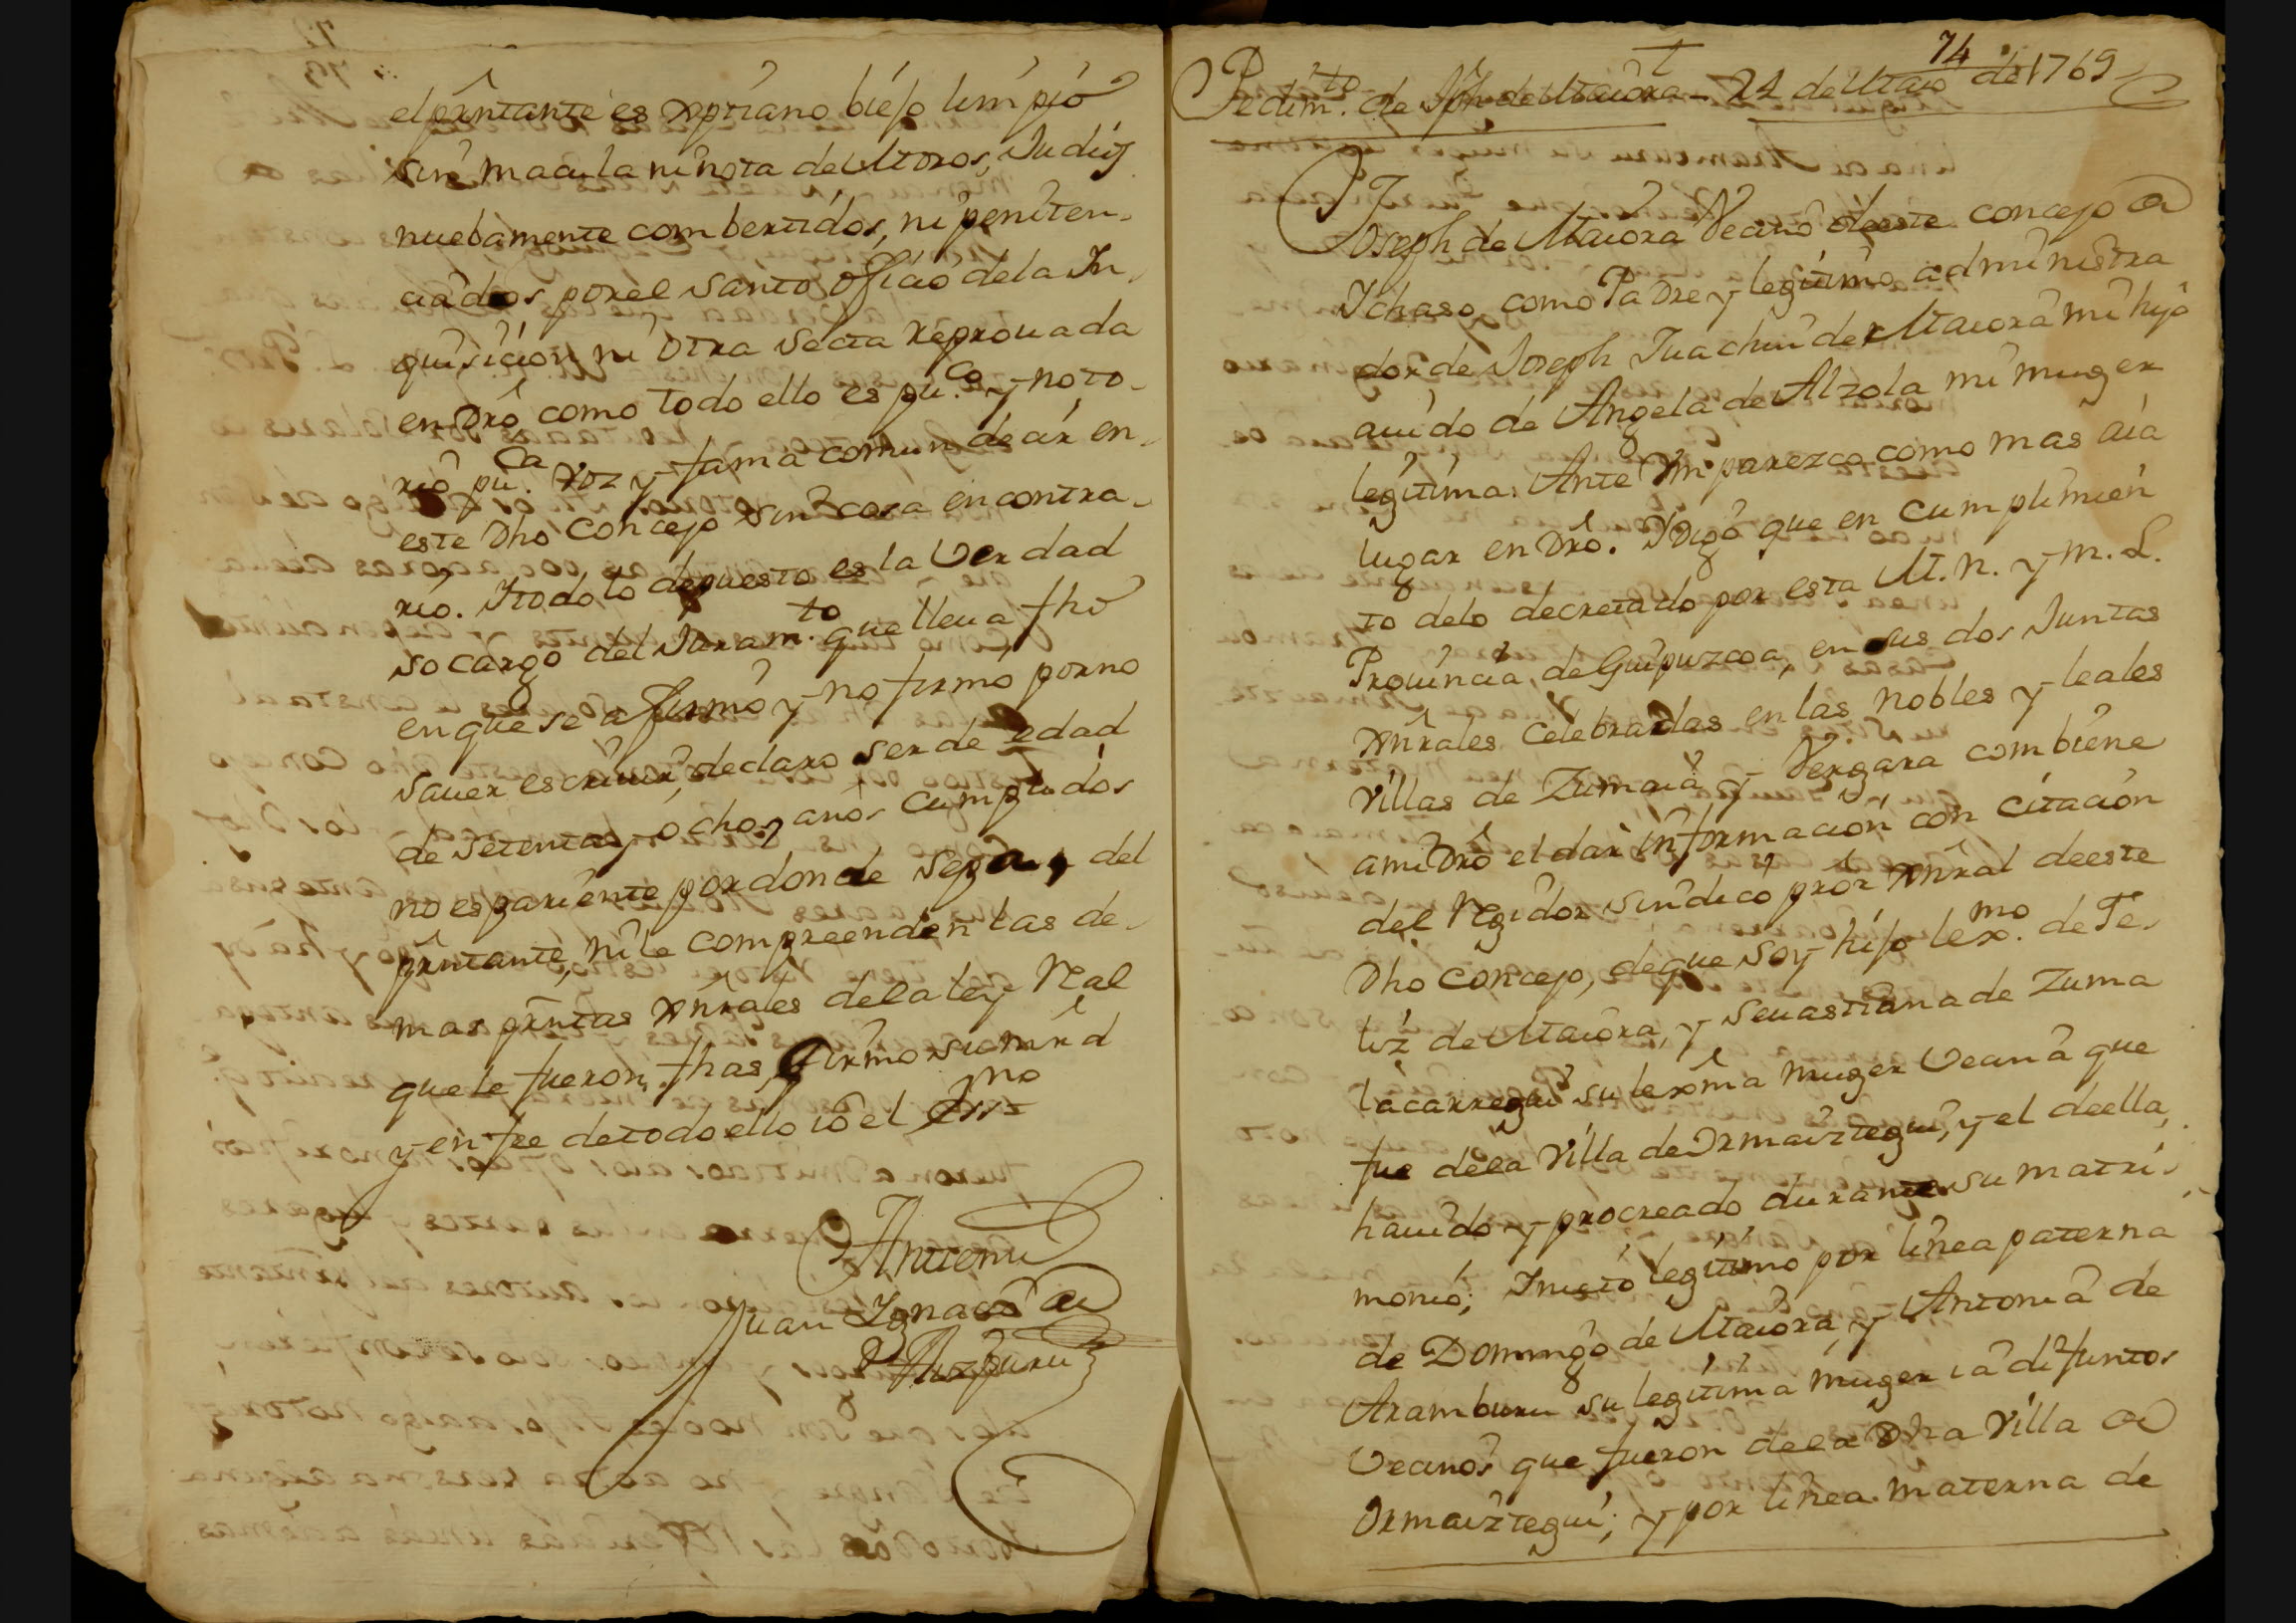 el pn̂tante es xptiano biejo limpio
sin macula ni nota de Moros, Judios
nuebamente combertidos, ni peniten-
ciados por el santo ofiçio de la In-
quisicion ni otra secta reprouada
en Dr̂o como todo ello es pu.co y noto-
rio pu.ca voz y fama comun decir en
este Dho Concejo sin cosa en contra-
rio. Y todo lo depuesto es la Verdad
so cargo del Juram.to que lleua fho
en que se afirmó y no firmó por no
sauer escriuir, declaro ser de edad
de setenta y ocho años cumplidos
no es pariente por donde sepa, del
pn̂tante, ni le compreenden las de-
mas pr̂ntas xn̂rales de la ley Real
que le fueron fhas, firmo su mr̂d
y en fee de todo ello io el Ess.no
Antemi
Juan Ignacio de
Aizpuru
74
Pedim.to de Jph de Maiora - 24 de Maio de 1769
Joseph de Maiora Vecino de este concejo de
Ichaso, como Padre y legitimo administra
dor de Joseph Juachin de Maiora mi hijo
auido de Angela de Alzola mi muger
legitima. Ante Vm parezco como mas aia
lugar en Dr̂o. Y Digo que en cumplimien
to de lo decretado por esta M. N. y M. L.
Prouincia de Guipuzcoa, en sus dos Juntas
xn̂rales celebradas en las nobles y leales
Villas de Zumaia y Vergara combiene
a mi Dr̂o el dar informacion con citacion
del Regidor sindico pr̂or xn̂ral de este
Dho Concejo, de que soy hijo lex.mo de Fe-
liz de Maiora, y Seuastiana de Zuma
lacarregui su lexm̂a muger Vecina que
fue de la Villa de Ormaiztegui, y el de ella,
hauido y procreado durante su matri-
monio; Inieto legitimo por linea paterna
de Domingo de Maiora y Antonia de
Aramburu su legitima muger ia difuntos
Vecinos que fueron de la Dha Villa de
Ormaiztegui; y por linea materna de